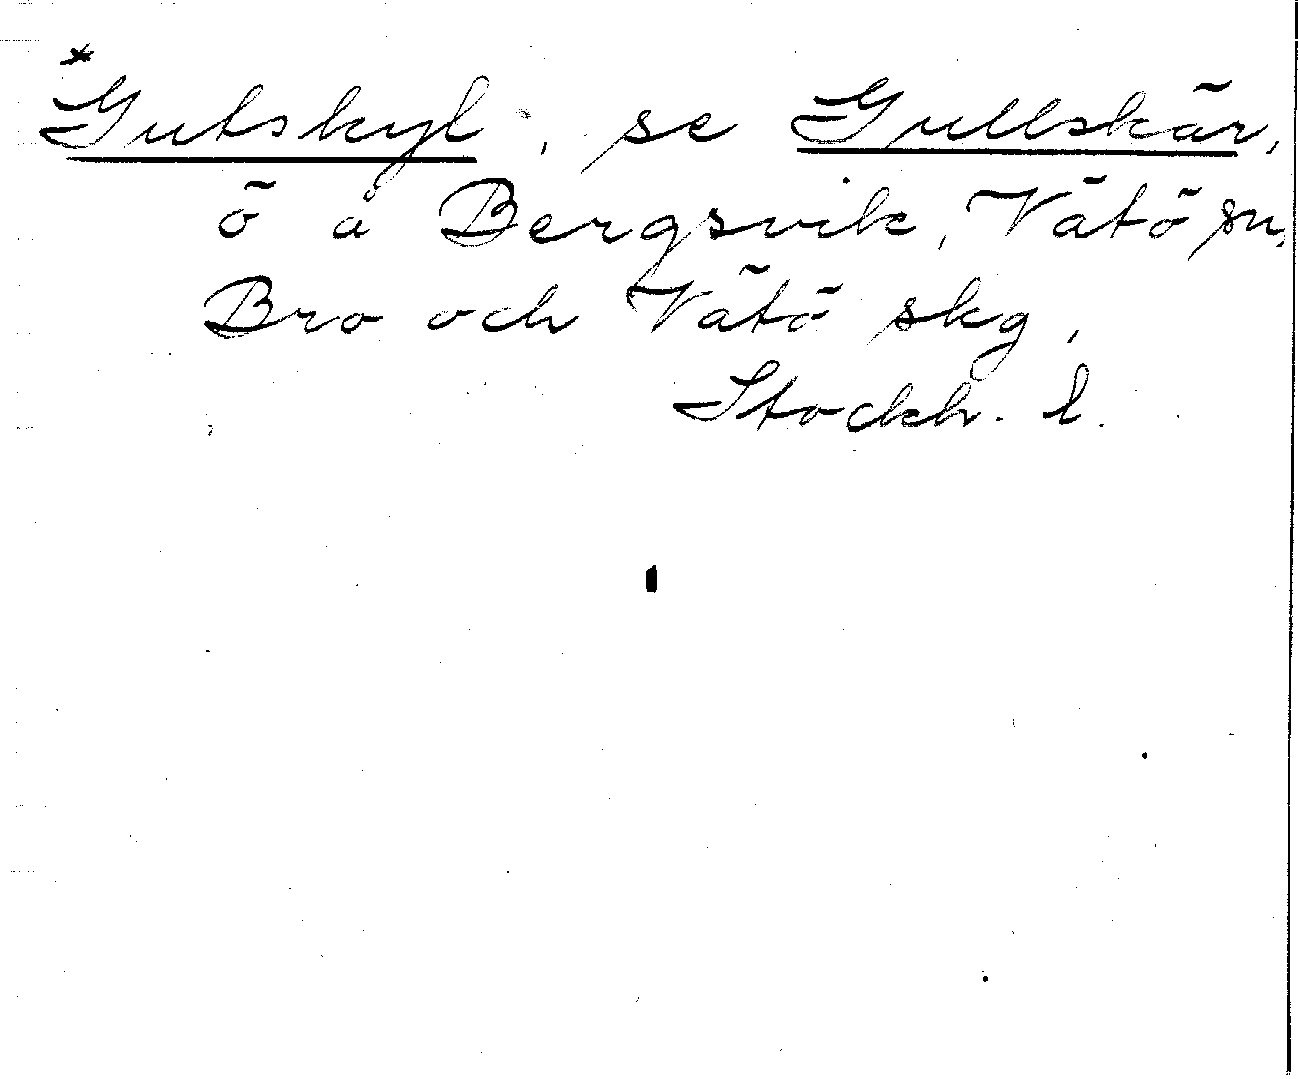 *Gutskyl, se Gullskär,
ö å Bergsvik, Vätö sn,
Bro och Vätö skg,
Stockh. l.